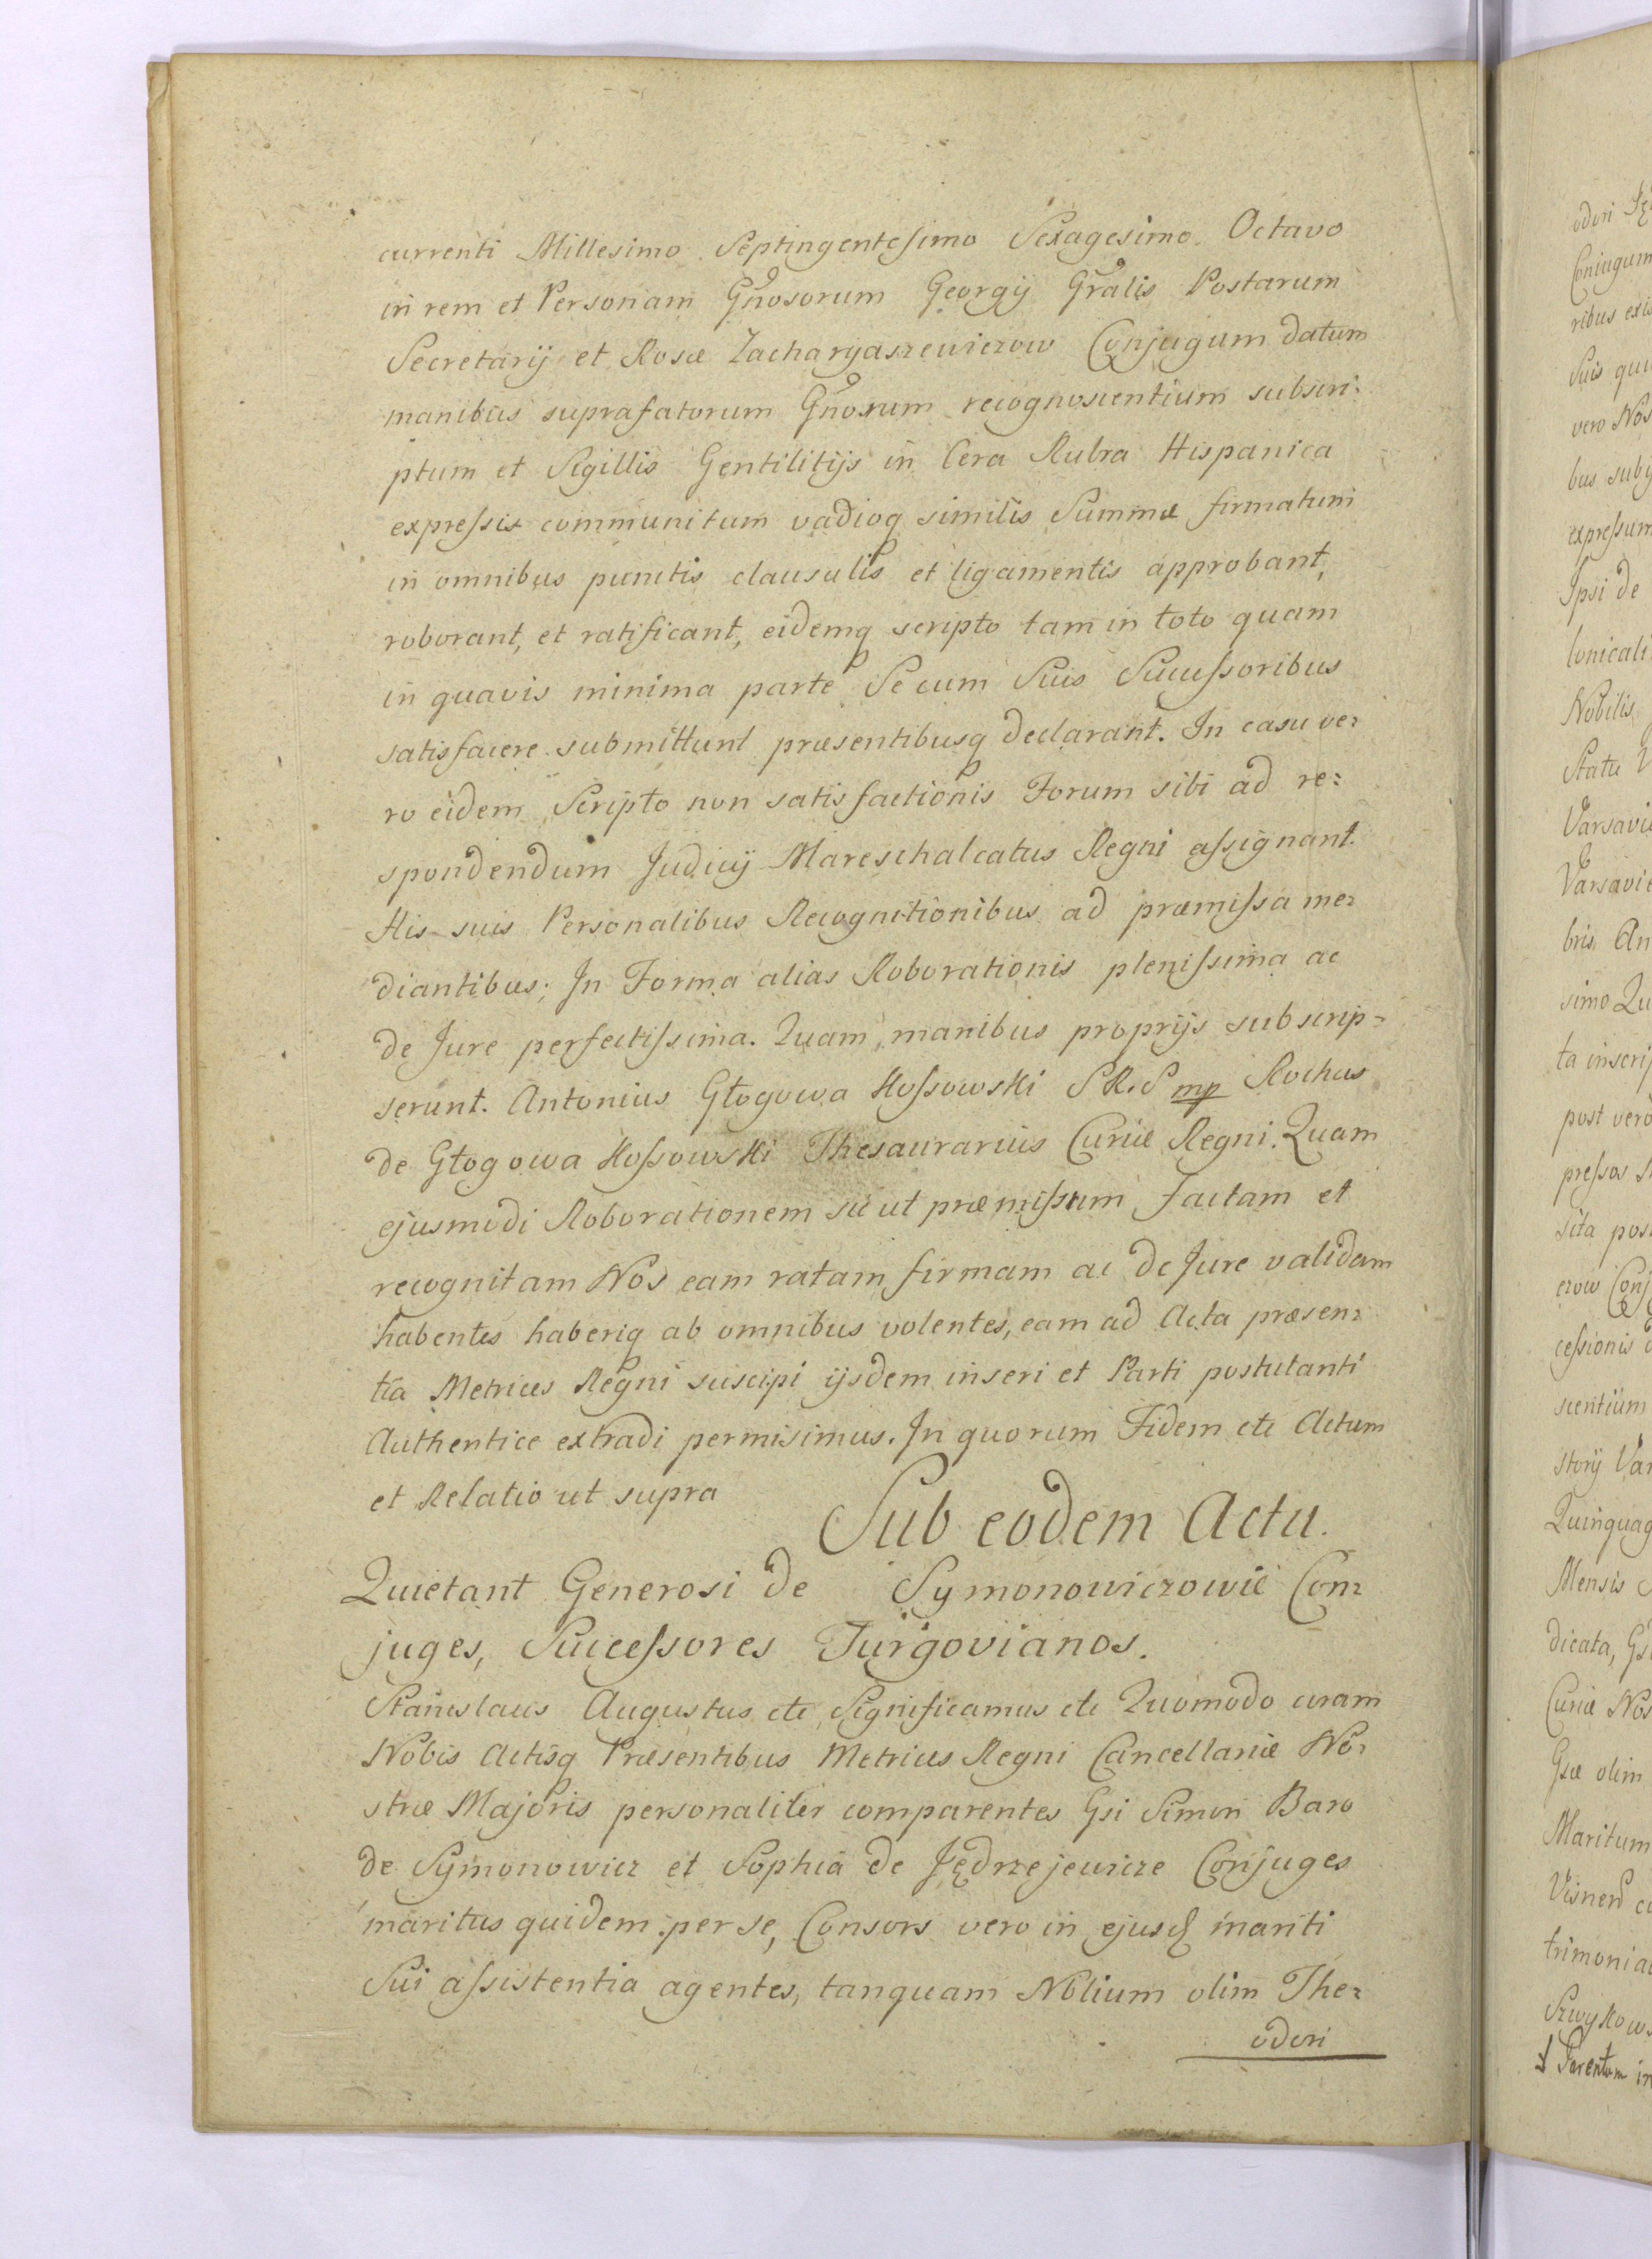 currenti Millesimo Septingentesimo Sexagesimo Octavo
in rem et Personam Gnosorum Georgij Gralis Postarum
Secretarij et Rosæ Zacharyaszewiczow Conjugum datum
manibus suprafatorum Gnosrum recognoscentium subscri:
ptum et Sigillis Gentilitijs in Cera Rubra Hispanica
expressis communitum vadioq similis Summæ firmatum
in omnibus punctis clausulis et ligamentis approbant,
roborant, et ratificant, eidemq scripto tam in toto quam
in quavis minima parte Se cum Suis Successoribus
satisfacere submittunt præsentibusq declarant. In casu ve:
ro eidem Scripto non satisfactionis Forum sibi ad re:
spondendum Judicij Mareschalcatus Regni assignant.
His suis Personalibus Recognitionibus ad præmissa me:
diantibus; In Forma alias Roborationis plenissima ac
de Jure perfectissima. Quam manibus proprijs subscrip=
serunt. Antonius Głogowa Kossowski S R. S mp Rochus
de Głogowa Kossowski Thesaurarius Curiæ Regni. Quam
ejusmodi Roborationem sic ut præmissum factam et
recognitam Nos eam ratam firmam ac de Jure validam
habentes haberiq ab omnibus volentes, eam ad Acta præsen:
tia Metrices Regni suscipi ijsdem inseri et Parti postulanti
Authentice extradi permisimus. In quorum Fidem etc Actum
et Relatio ut supra
Sub eodem Actu.
Quietant Generosi de Symonowiczowie Con:
juges, Successores Jurgovianos.
Stanislaus Augustus etc Significamus etc Quomodo coram
Nobis Actisq Præsentibus Metrices Regni Cancellariæ No:
stræ Majoris personaliter comparentes Gsi Simon Baro
de Symonowicz et Sophia de Jędrzejewicze Conjuges
maritus quidem per se, Consors vero in ejusd mariti
Sui assistentia agentes, tanquam Nblium olim The:
odori